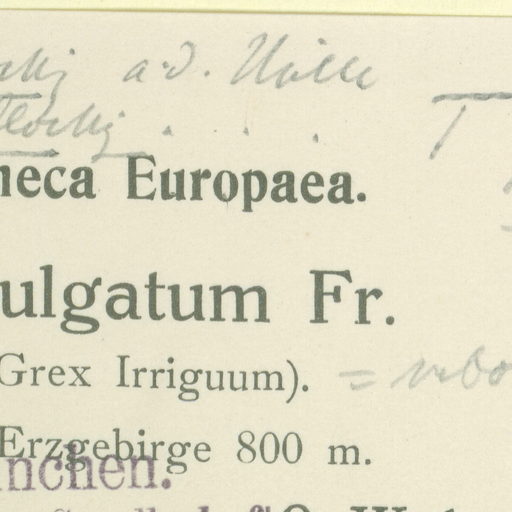 a. d. Hülle
flockig . . .
neca Europaea.
ulgatum Fr.
Grex Irriguum). =
Erzgebirge 800 m.
nchen.